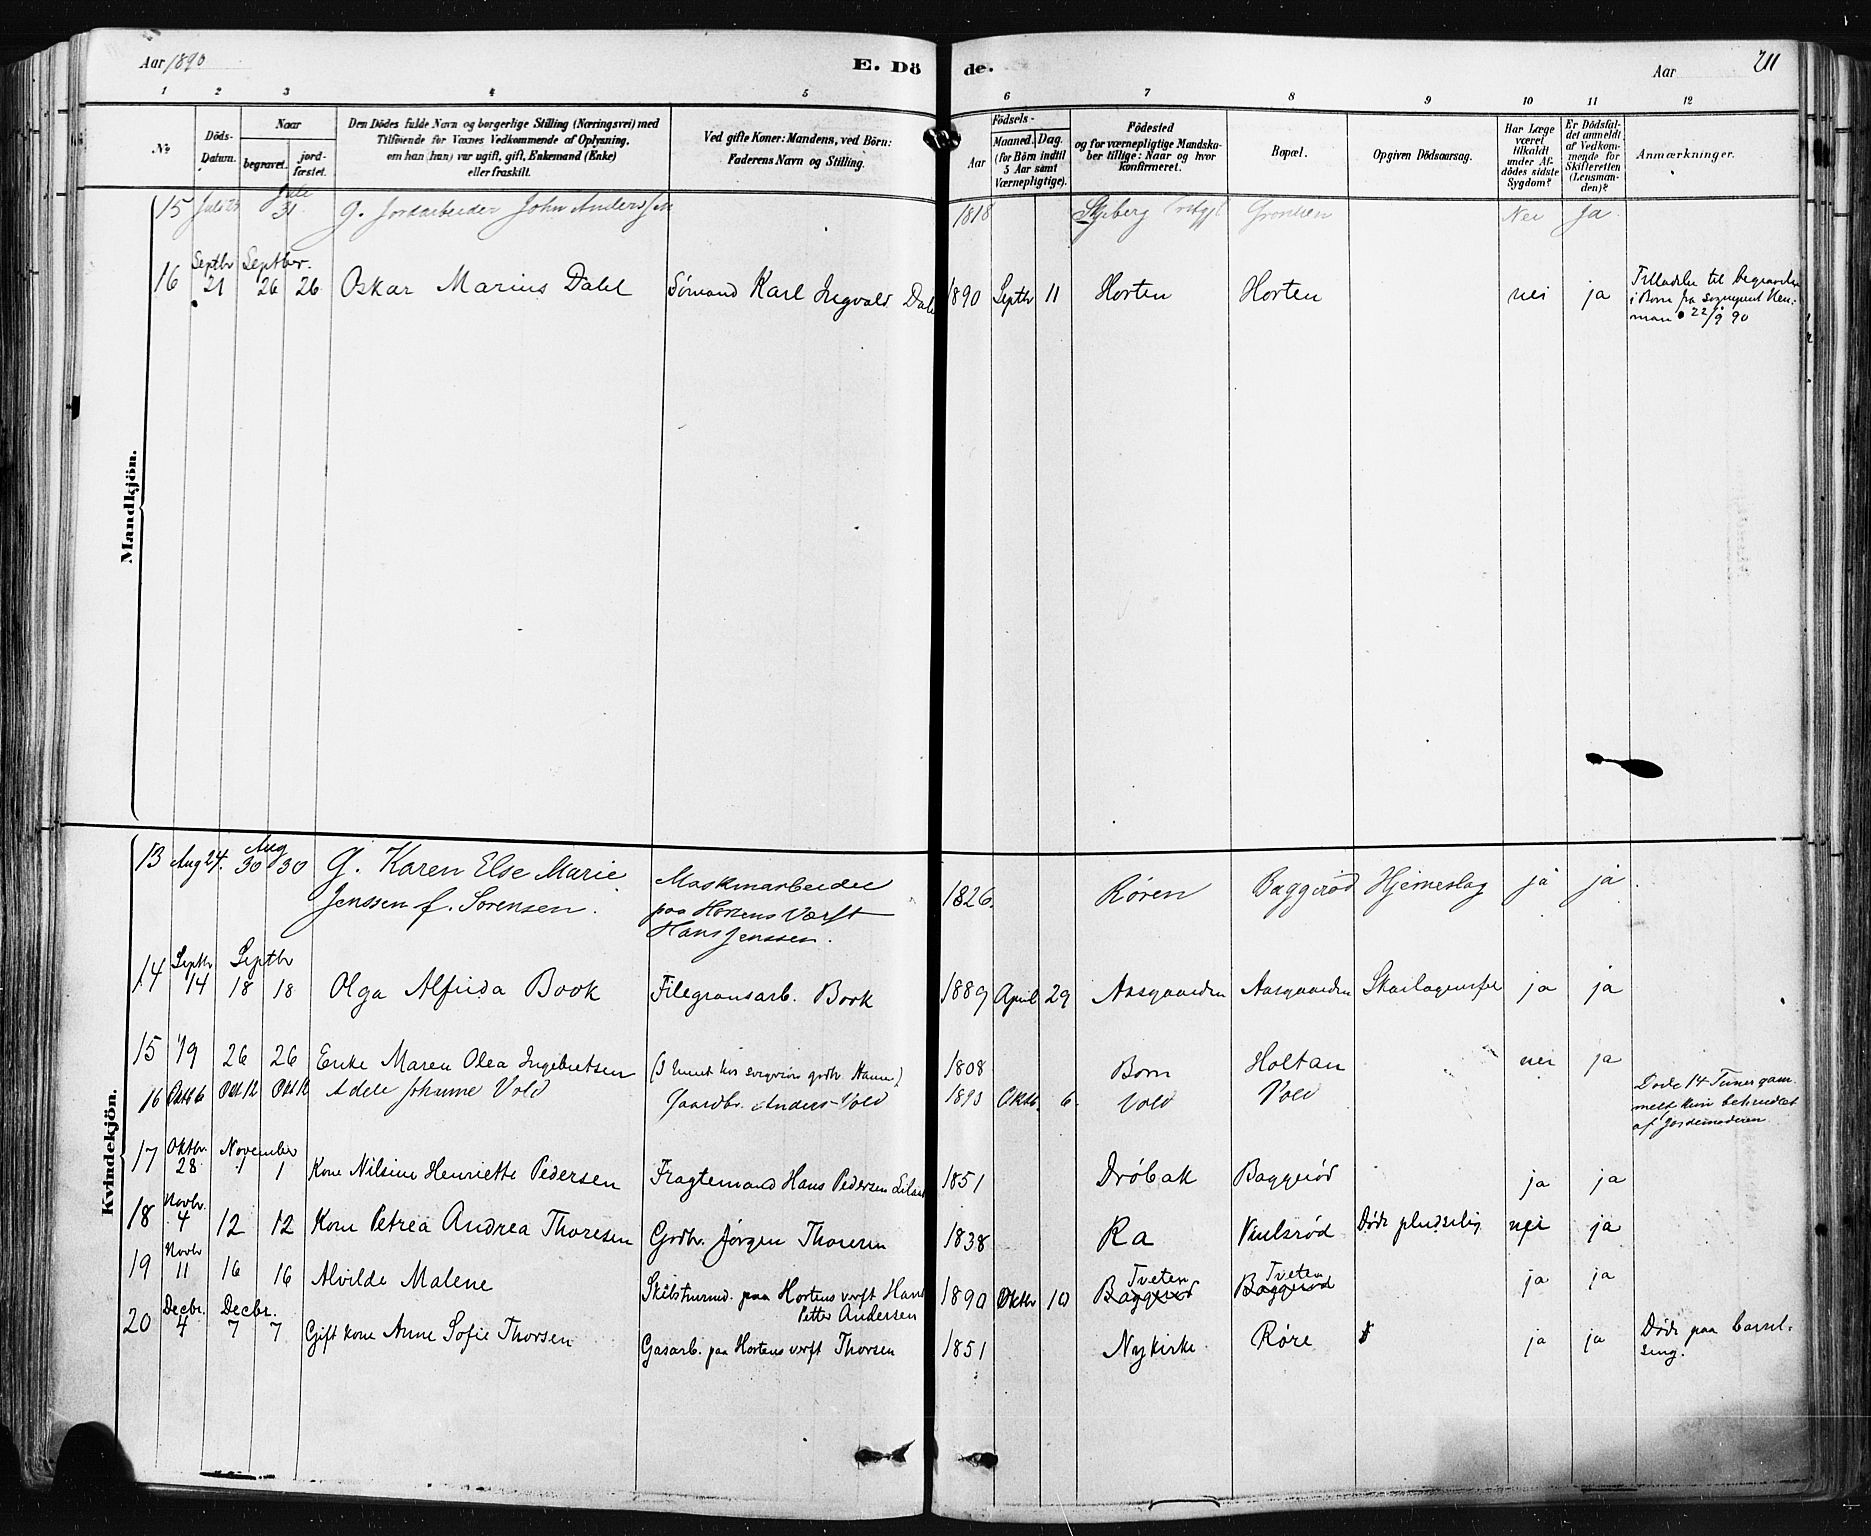 Aar 1890
E. Dö
de.
Aar
211
1 2 3 4 5 6 7 8 9 10 11 12
No
Döds-Datum.
Naar
begravet.
jord-fæstet.
Den Dödes fulde Navn og borgerlige Stilling (Næringsvei) med
Tilföiende for Voxnes Vedkommende af Oplysning,
om han (hun) var ugift, gift, Enkemand (Enke)
eller fraskilt.
Ved gifte Koner: Mandens, ved Börn:
Faderens Navn og Stilling.
Födsels-
Aar
Maaned. Dag.
(for Börn indtil
5 Aar samt
Værnepligtige).
Födested
og for værnepligtige Mandska-
ber tillige: Naar og hvor
konfirmeret.
Bopæl.
Opgiven Dödsaarsag.
Har Læge
været
tilkaldt
under Af-
dödes sidste
Sygdom?
Er Dödsfal-
det anmeldt
af Vedkom-
mende for
Skifteretten
(Lensman-
den)?
Anmærkninger.
Mandkjön.
15 Juli 23 Juli 31 G. Jordarbeider John Anderssen 1818 Skjeberg Nei Ja
16 Septbr 21 Septber. 26 26 Oskar Marius Dahl Sømand Karl Ingvald Dahl 1890 Septbr 11 Horten Horten nei ja
Tilladelse til begravelse
i Borre fra sogneprest
22/9 90
Kvindekjön.
13 Aug 24. Aug 30 30 G. Karen Else Marie
Jenssen f. Sorensen.
Maskinarbeider
paa Hortens Værft
Hans Jenssen.
1826. Røren Baggerød Hjerneslag ja ja
14 Septbr 14 Septbr 18 18 Olga Alfrida Book Filegransarb. Book 1889 April 29 Aasgaarden Aasgaarden ja ja
15 19 26 26 Enke Maren Olea Ingebretsen 1808 Borre Holtan nei ja
16 Oktb 6 Okt 12 Okt 12 Adele Johanne Vold Gaardbr. Anders Vold Oktb. 6 Vold Vold
Døde 14 Timer gam-
melt kun behandlet
af Jordemoderen
17 Oktbr. 28 November 1 1 Kone Nilsine Henriette Pedersen Fragtemand Hans Pedersen 1851 Drøbak Baggerød ja ja
18 Novbr. 4 12 12 Kone Petrea Andrea Thoresen Grdbr. Jørgen Thoresen 1838 Ra Døde pludselig nei ja
19 Novbr 11 16 16 Alvilde Malene paa Hortens verft Hans
Petter Andersen
1890 Oktbr 10 Tveten Baggerød Tveten Baggerød ja ja
20 Decbr. 4 Decbr. 7 7 Gift kone Anne Sofie Thorsen Gasarb. paa Hortens verft Thorsen 1851 Nykirke Røre ja ja
Døde paa barsel-
seng.